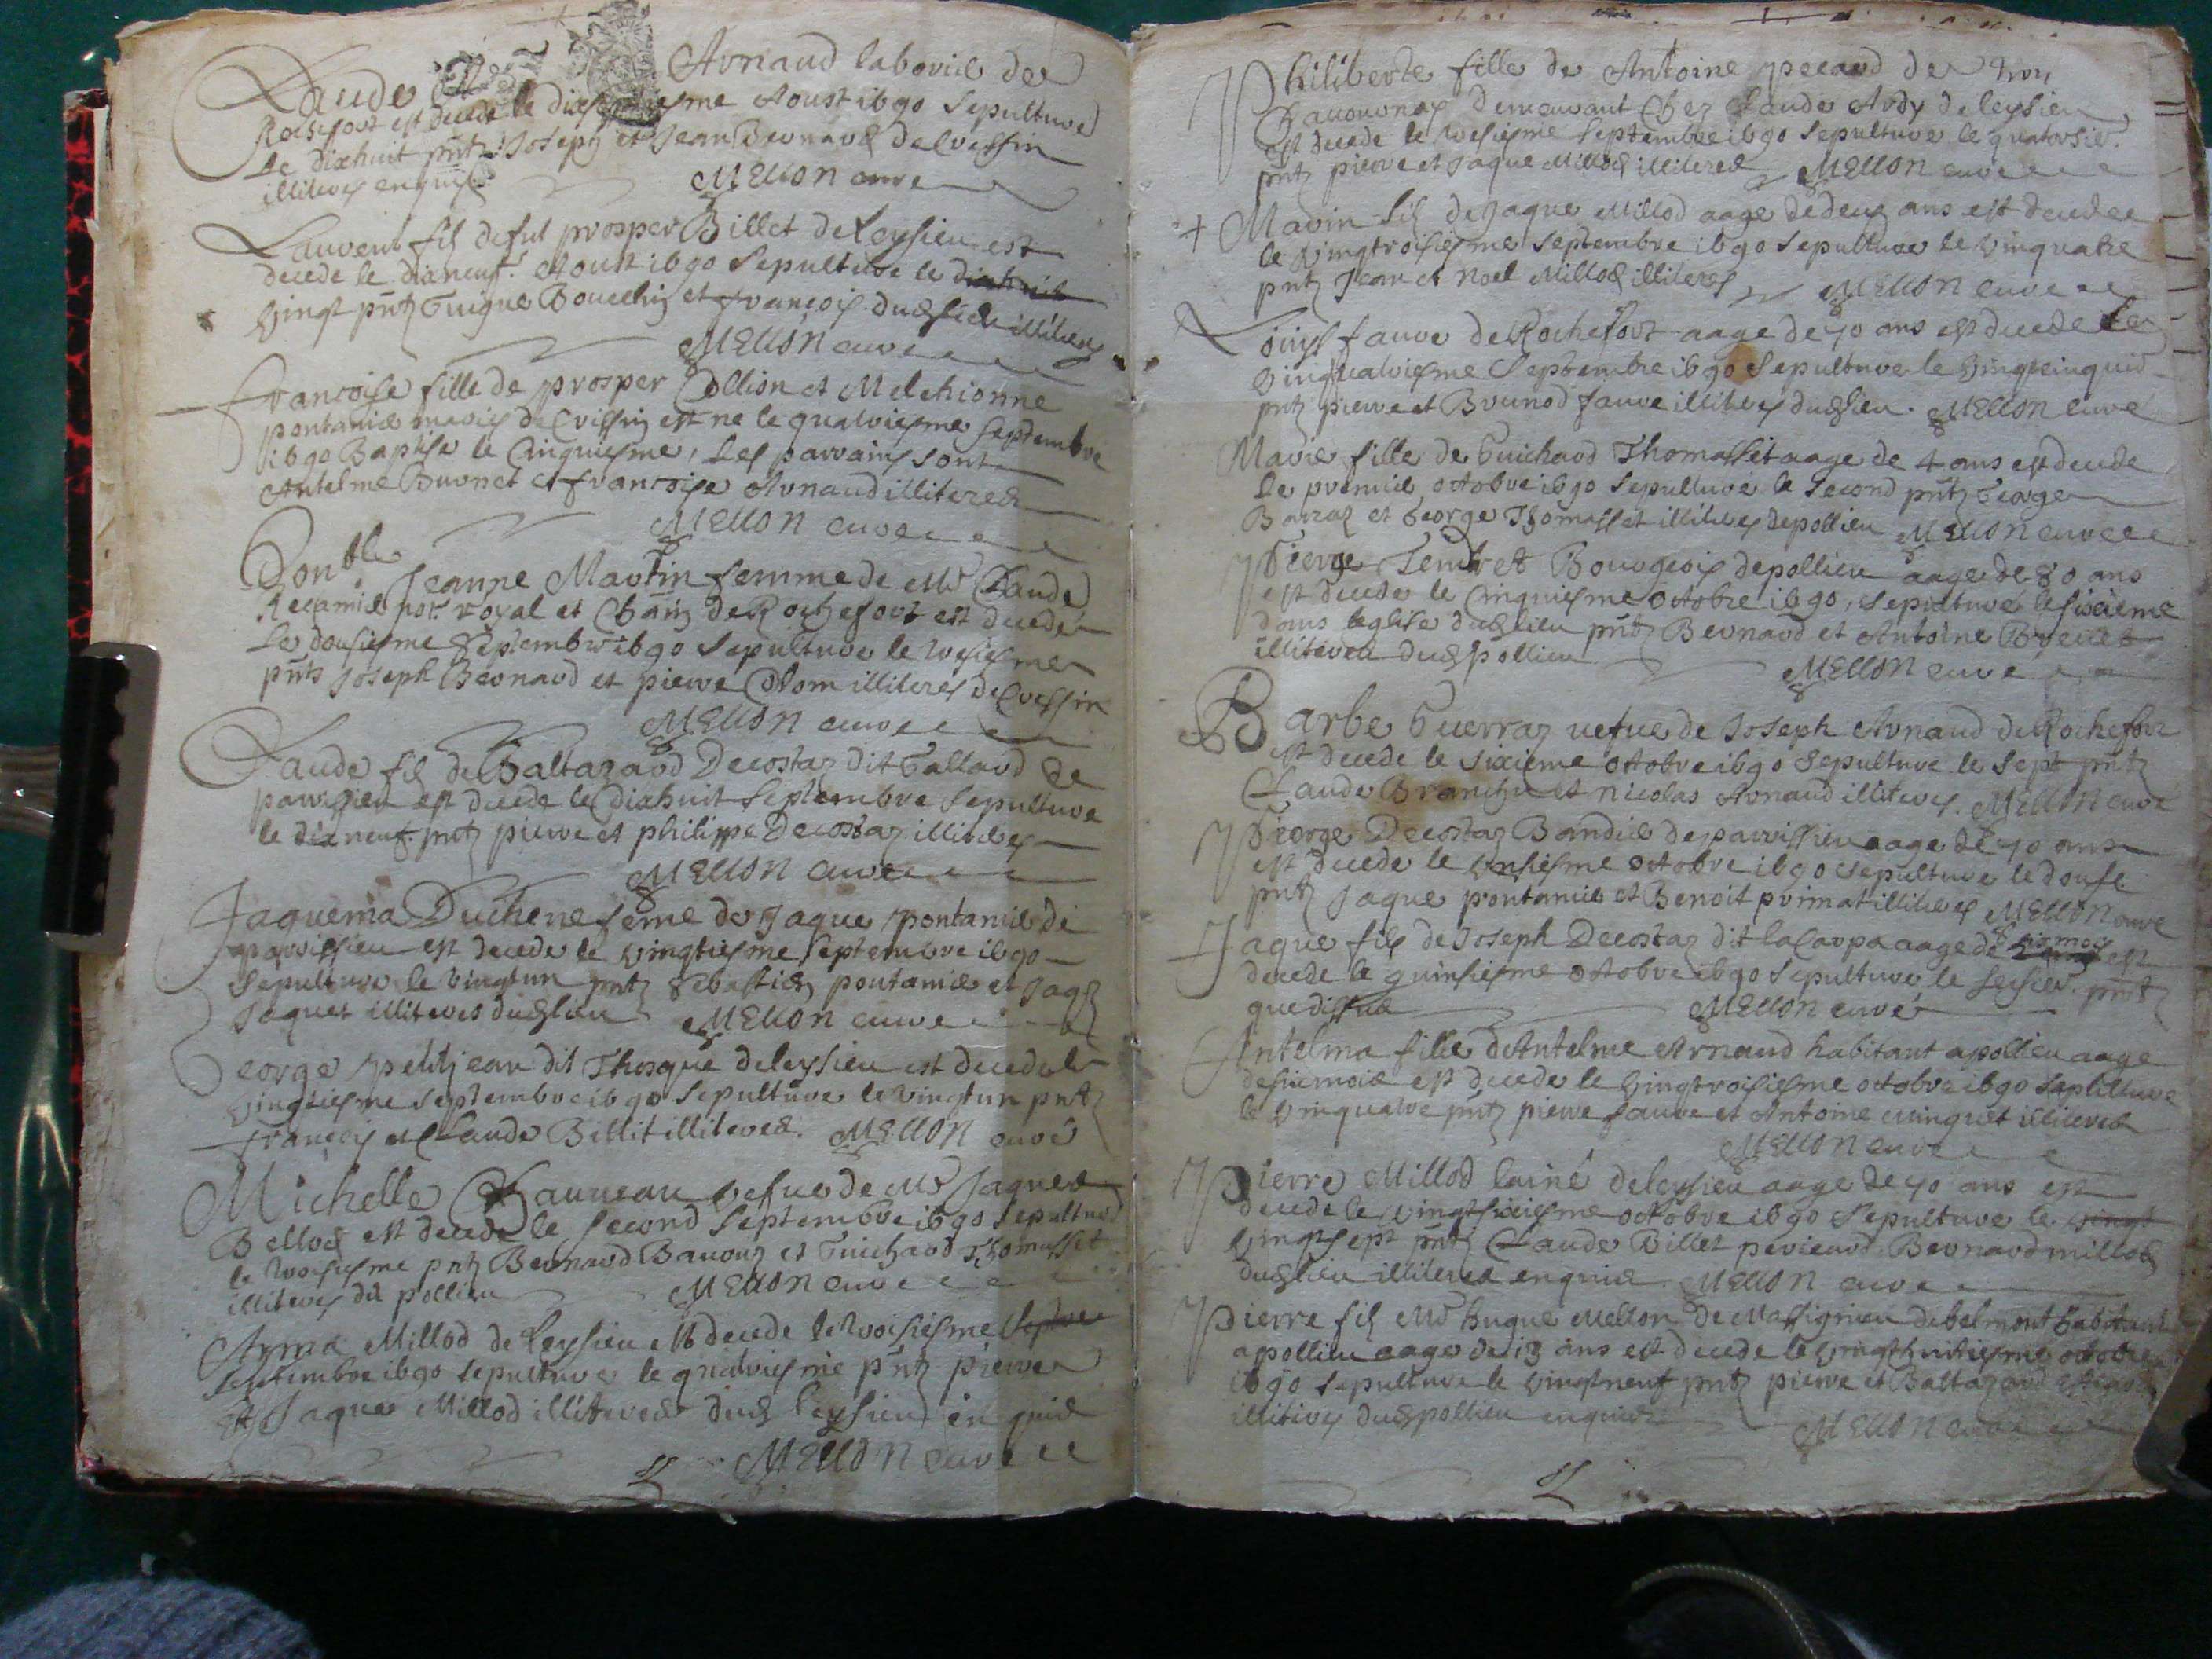 Claude Arnaud laborie de
Rochefort est decede le dixseptiesme Aoust 1690 sepulture
le dixhuit pntz Joseph et Jean Bernard de Cressin
illiteres enquis MELLON cure
Laurent fils de fut prosper Billet de Leysieu est
decede le dixneuf. Aoust 1690 sepulture le dixhuit
vingt pntz Guigue Bouchin et françois dudlieu illiteres
MELLON cure
francoise fille de prosper Collion et Melchionne
pontanie maries de Cressin est ne le quatriesme septembre
1690 Baptise le cinquiesme, les parrains sont
Antelme Burnet et francoise Arnaud illiteres
MELLON cure
Double
Jeanne Martin femme de Mr Claude
Recamie not. royal et Chatn de Rochefort est decede
le dousiesme septembre 1690 sepulture le tresiesme
pnts Joseph Bernard et pierre Colom illiteres de Cressin
MELLON cure
Claude fils de Baltazard Decostaz dit Gallard de
parvissieu est decede le dixhuit septembre sepulture
le dixneuf. pntz pierre et philippe Decostaz illiteres
MELLON cure
Jaquema Duchene feme de Jaque pontanie de
parvissieu est decede le vingtiesme septembre 1690
sepulture le vingtun pntz sebastien pontanie et Jaqz
Jaquet illiteres dudlieu MELLON cure
George petitjean dit Thosque deleysieu est decede le
vingtiesme septembre 1690 sepulture le vingtun pntz
françois et Claude Billit illiteres. MELLON curé
Michelle vefue de Mr Jaques
Bellod est decede le second septembre 1690 sepulture
le troisiesme pntz Bernard Barouz et Guichard Thomasset
illiteres de pollieu MELLON cure
Anna Millod de leysieu est decede le troisiesme septbre
septembre 1690 sepulture le quatriesme pntz pierre
et Jaque Millod illiteres dud leysieu enquis
MELLON cure
Philiberte fille de Antoine pecard de
demeurant Chez Claude Ardy deleysieu
est decede le tresiesme septembre 1690 sepulture le quatorsie.
pntz pierre et Jaque Millod illiteres MELLON cure
+ Marin fils de Jaque Millod aage de deux ans est decedee
le vingtroisiesme septembre 1690 sepulture le vinquatre
pntz Jean et Noel Millod illiteres MELLON cure
Louys faure de Rochefort aage de 70 ans est decede le
vinquatriesme septembre 1690 sepulture le vingtcinquie
pntz pierre et Brunod faure illiteres dudlieu. MELLON curé
Marie fille de Guichard Thomasset aage de 4 ans est decede
le premie octobre 1690 sepulture le second pntz George
Barraz et George Thomasset illiteres depollieu MELLON cure
Pierre Bourgeois depollieu aage de 80 ans
est decede le Cinquiesme octobre 1690, sepulture le sixieme
dans leglise dudlieu pntz Bernard et Antoine
illiteres dud pollieu MELLON cure
Barbe Guerraz vefue de Joseph Arnaud de Rochefort
est decede le sixieme octobre 1690 sepulture le sept pntz
Claude et nicolas Arnaud illiteres. MELLON cure
George Decostaz Bandie deparvissieu aage de 70 ans
est decede le unsiesme octobre 1690 sepulture le douse
pntz Jaque pontanie et Benoit primat illiteres MELLON cure
Jaque fils de Joseph Decostaz dit la Carpa aage de six moys est
decede le quinsiesme octobre 1690 sepulture le seisie. pntz
quedissus MELLON curé
Antelma fille dAntelme Arnaud habitant apollieu aage
desixmois est decede le vingtroisiesme octobre 1690 sepulture
le vinquatre pntz pierre faure et Antoine cuinquet illiteres
MELLON cure
Pierre Millod lainé deleysieu aage de 70 ans est
decede le vingtsixiesme octobre 1690 sepulture le vingt
vingtsept pntz Claude Billet Bernard millod
dudlieu illiteres enquis MELLON cure
Pierre fils Mr hugue Mellon de Massignieu debelmont habitant
apollieu aage de 13 ans est decede le vingthuitiesme octobre
1690 sepulture le vingtneuf pntz pierre et Baltazard
illitires dudpollieu enquis MELLON cure